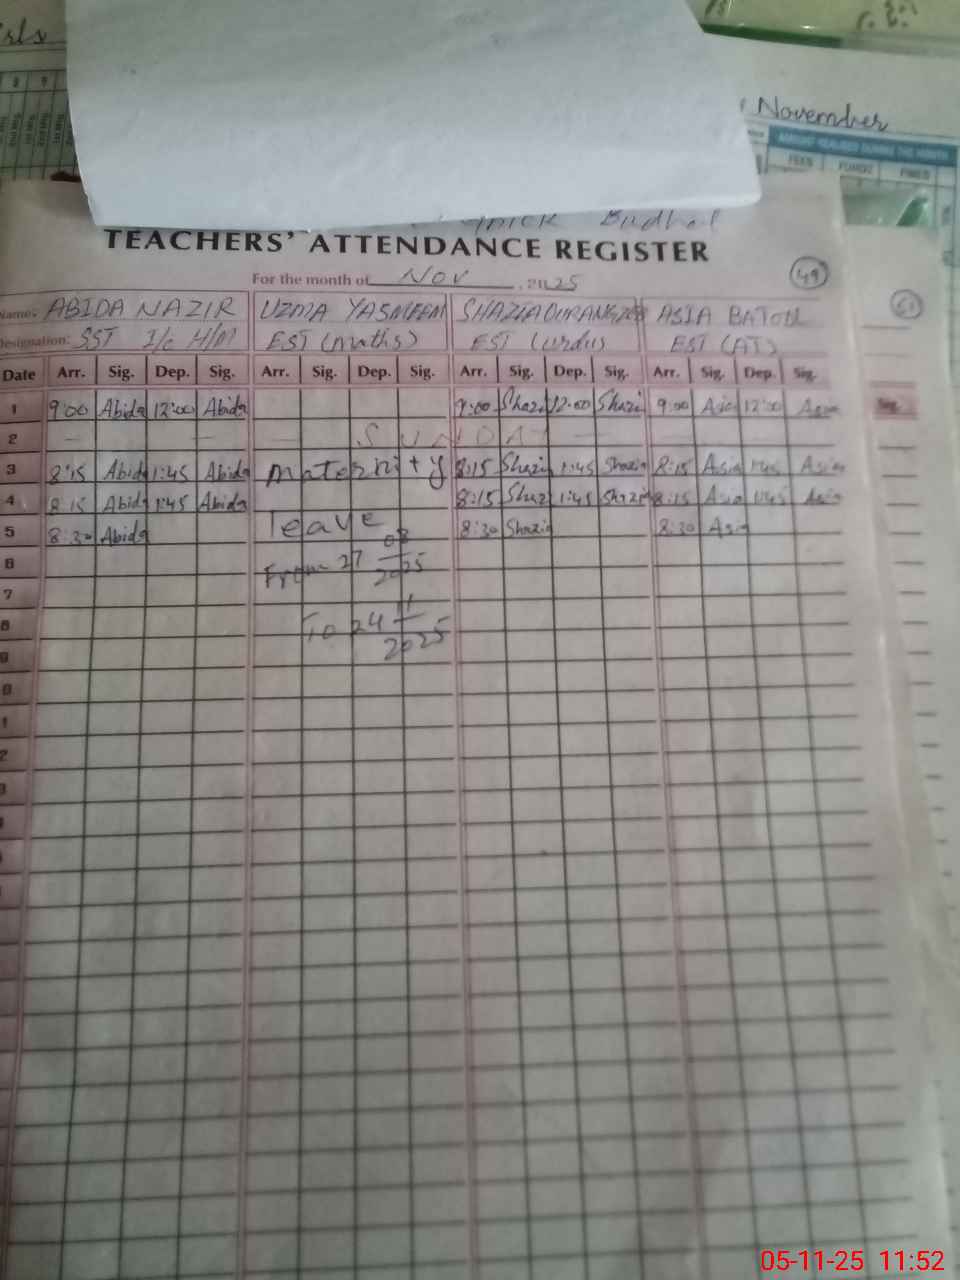 November
AMOUNT REALISED DURING THE MONTH
FEES FINES
Budhal
TEACHERS' ATTENDANCE REGISTER
For the month of Nov, 2025
49
51
Name: ABIDA NAZIR UZMA YASMEEN SHAZIA ASIA BATOOL
Designation: SST I/c H/M EST (maths) EST (urdu) EST (AT)
Date Arr. Sig. Dep. Sig. Arr. Sig. Dep. Sig. Arr. Sig. Dep. Sig. Arr. Sig. Dep. Sig.
1 9:00 Abida 12:00 Abida 9:00 Shazi 12:00 Shazi 9:00 Asia 12:00 Asia
Sig.
2 — — — SUNDAY — —
3 8:15 Abida 1:45 Abida maternity 8:15 Shazia 1:45 Shazia 8:15 Asia 1:45 Asia
4 8:15 Abida 1:45 Abida 8:15 Shazi 1:45 Shazia 8:15 Asia 1:45 Asia
5 8:30 Abida leave 8:30 Shazia 8:30 Asia
6 From 27 08 2025
7
8 To 24 11 2025
9
05-11-25 11:52